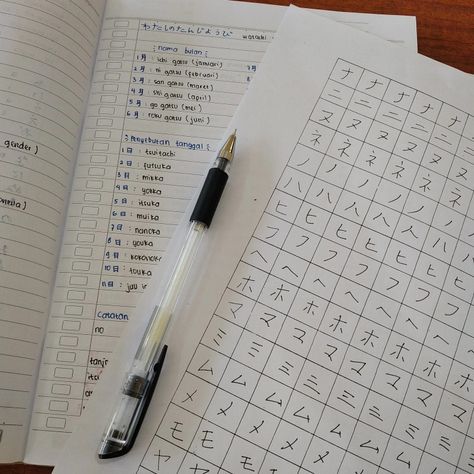 gender)
わたしのたんじょうび
[nama bulan]
1月 : ichi gatsu (januari)
2月 : ni gatsu (februari)
3月 : san gatsu (maret)
4月 : shi gatsu (april)
5月 : go gatsu (mei)
6月 : roku gatsu (juni)
[Penyebutan tanggal]
1日 : tsuitachi
2日 : futsuka
3日 : mikka
4日 : yokka
5日 : itsuka
6日 : muika
7日 : nanoka
8日 : youka
9日 : kokonoka
10日 : touka
11日 : juu
Catatan
no
ナ ナ ナ ナ
ニ ニ ニ ニ
ヌ ヌ ヌ ヌ ヌ
ネ ネ ネ ネ ネ
ノ ノ ノ ノ
ハ ハ ハ ハ ハ
ヒ ヒ ヒ ヒ ヒ
フ フ フ フ フ
ヘ ヘ ヘ ヘ ヘ
ホ ホ ホ ホ ホ
マ マ マ マ マ
ミ ミ ミ ミ ミ
ム ム ム ム ム
メ メ メ メ メ
モ モ モ モ モ
ヤ ヤ ヤ ヤ